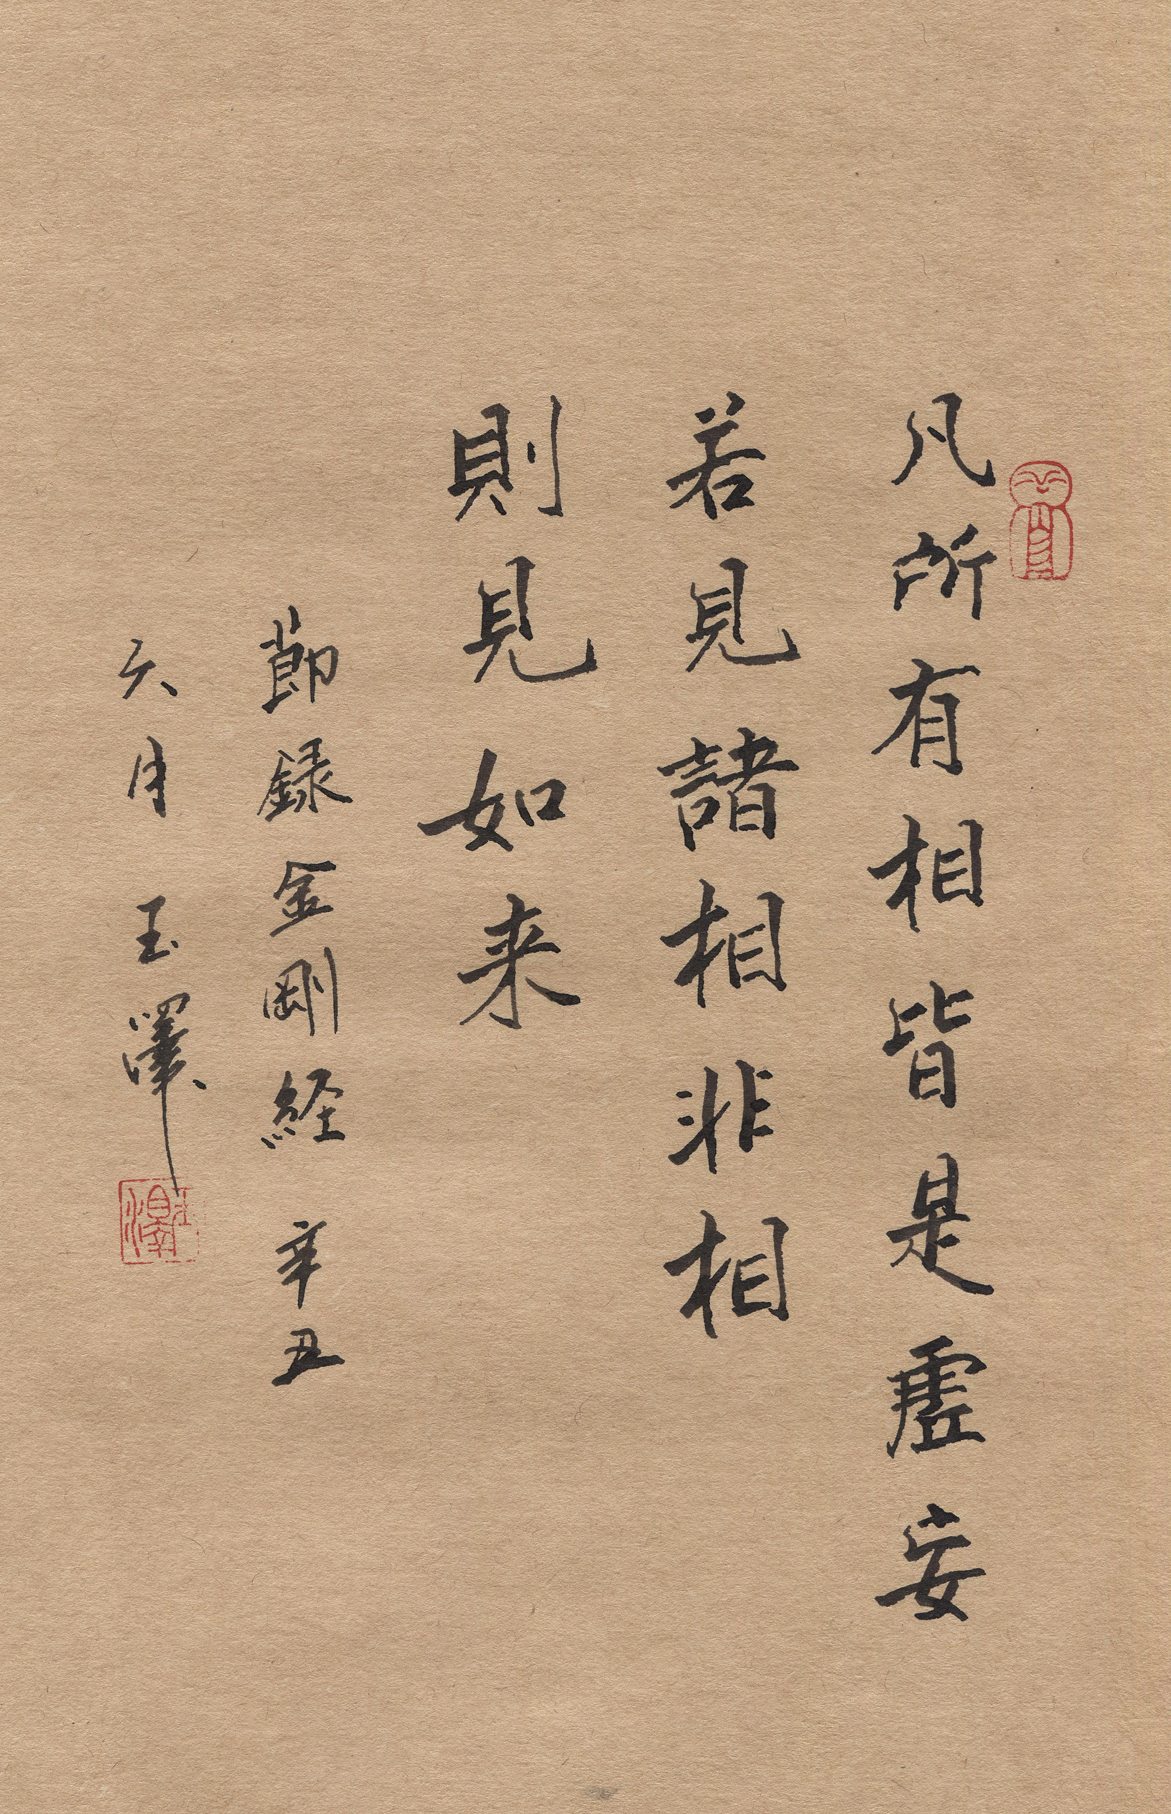 凡所有相皆是虛妄
若見諸相非相
則見如来
節録金剛経 辛丑
六月 玉澤